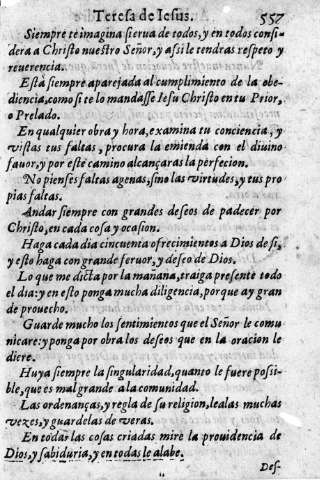 Teresa de Iesus. 557
Siempre te imagina sierua de todos, y en todos consi-
dera a Christo nuestro Señor, y assi le tendras respeto y
reuerencia.
Està siempre aparejada al cumplimiento de la obe-
diencia, como si te lo mandasse Iesu Christo en tu Prior,
o Prelado.
En qualquier obra y hora, examina tu conciencia, y
vistas tus faltas, procura la emienda con el diuino
fauor, y por este camino alcançaras la perfecion.
No pienses faltas agenas, sino las virtudes, y tus pro
pias faltas.
Andar siempre con grandes deseos de padecer por
Christo, en cada cosa y ocasion.
Haga cada dia cincuenta ofrecimientos a Dios de si,
y esto haga con grande feruor, y deseo de Dios.
Lo que medita por la mañana, traiga presente todo
el dia: y en esto ponga mucha diligencia, porque ay gran
de prouecho.
Guarde mucho los sentimientos que el Señor le comu
nicare: y ponga por obra los deseos que en la oracion le
diere.
Huya siempre la singularidad, quanto le fuere possi-
ble, que es mal grande a la comunidad.
Las ordenanças, y regla de su religion, lealas muchas
vezes, y guardelas de veras.
En todas las cosas criadas mire la prouidencia de
Dios, y sabiduria, y en todas le alabe.
Des-